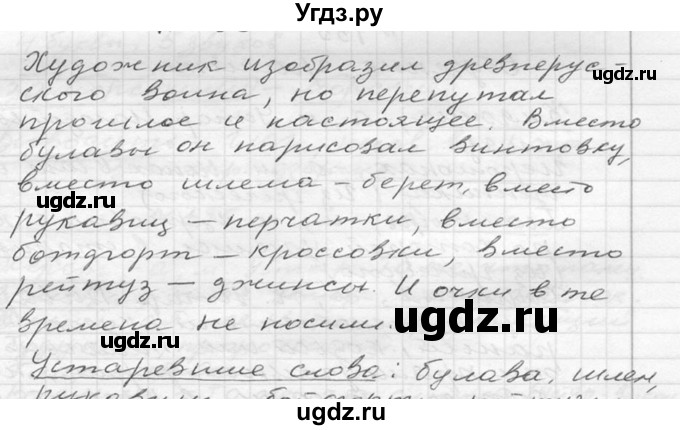 Угдз.ру
Художник изобразил древнерус-
ского воина, но перепутал
прошлое и настоящее. Вместо
булавы он нарисовал винтовку,
вместо шлема – берет, вместо
рукавиц – перчатки, вместо
ботфорт – кроссовки, вместо
рейтуз – джинсы. И очки в те
времена не носили.
Устаревшие слова: булава, шлем,
рукавицы, ботфорты,
ugdz.ru
ugdz.ru
ugdz.ru
ugdz.ru
ugdz.ru
ugdz.ru
ugdz.ru